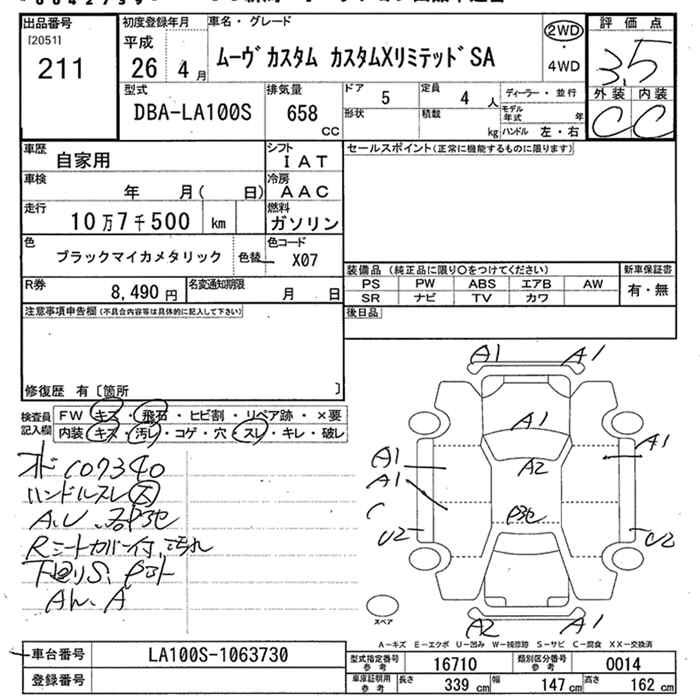 出品番号
[2051]
211
初度登録年月
平成
26 4月
車名・グレード
ムーヴ カスタム カスタムXリミテッド SA
2WD
・
4WD
評価点
3.5
外装 内装
C C
型式
DBA-LA100S
排気量
658
cc
ドア
5
定員
4 人
ディーラー・並行
形状
積載
kg
モデル年式
年
ハンドル 左・右
車歴
自家用
シフト
IAT
車検
年 月( 日)
冷房
AAC
走行
10万7千500 km
燃料
ガソリン
色
ブラックマイカメタリック
色替
色コード
X07
R券
8,490 円
名変通知期限
月 日
セールスポイント(正常に機能するものに限ります)
装備品 (純正品に限り○をつけてください)
PS PW ABS エアB AW
SR ナビ TV カワ
新車保証書
有・無
後日品
注意事項申告欄(不具合内容等は具体的に記入して下さい)
修復歴 有〔箇所 〕
検査員
記入欄
FW キズ・飛石・ヒビ割・リペア跡・×要
内装 キズ・汚レ・コゲ・穴・スレ・キレ・破レ
ハンドルスレ 大
Rシートカバー付、汚れ
下回りS
A1 A1
A1
A2
A1
A1
A1
C
U2
U2
A2 A1
スペア
A-キズ E-エクボ U-凹み W-補修跡 S-サビ C-腐食 XX-交換済
車台番号
LA100S-1063730
登録番号
型式指定番号
参考
16710
類別区分番号
参考
0014
車庫証明用
参考
長さ 339 cm
幅 147 cm
高さ 162 cm